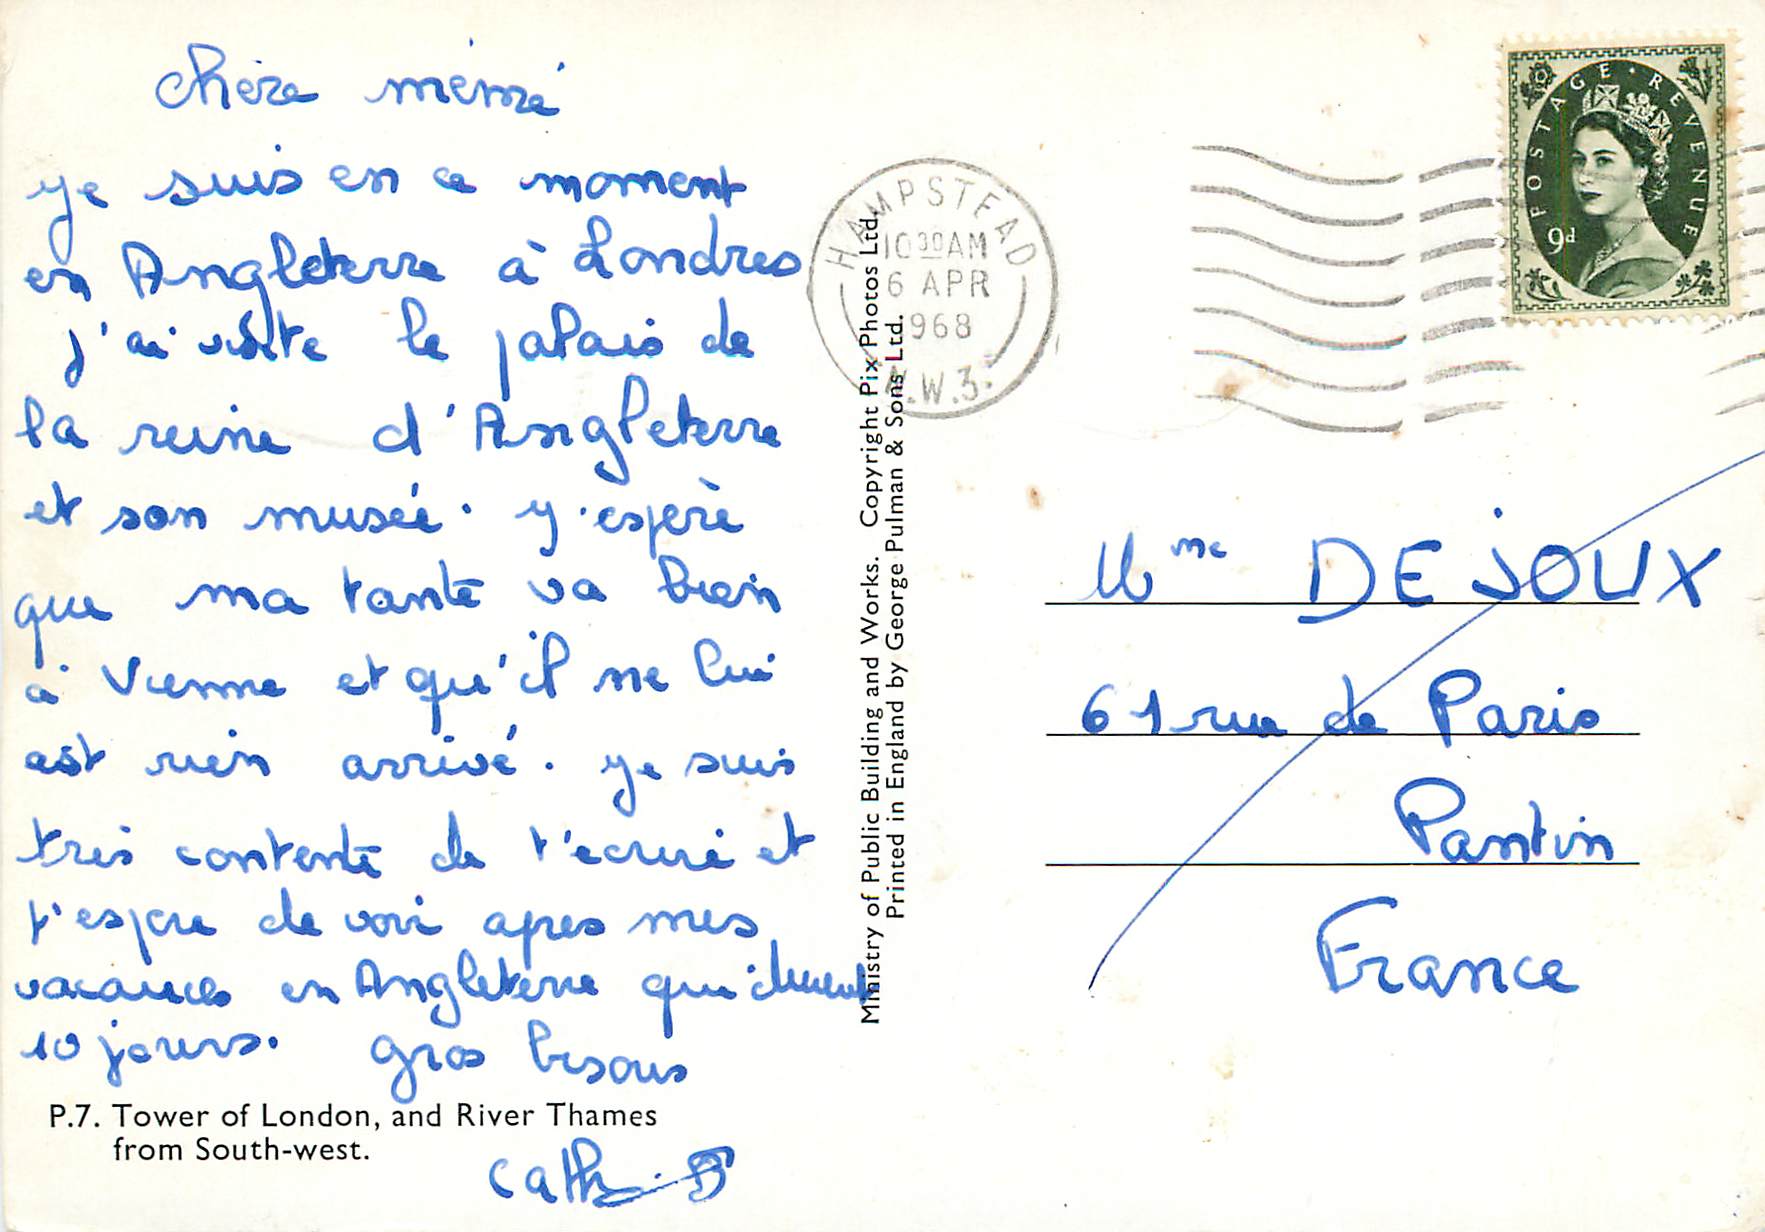 chère mémé
je suis en ce moment
en Angleterre à Londres
j'ai visite le palais de
la reine d'Angleterre
et son musée. j'espère
que ma tante va bien
à Vienne et qu'il ne lui
est rien arrivé. je suis
très contente de t'écrire et
j'espère de voir apres mes
vacances en Angleterre qui durent
10 jours. gros bisous
P.7. Tower of London, and River Thames
from South-west.
Cath B
Ministry of Public Building and Works. Copyright Pix Photos Ltd.
Printed in England by George Pulman & Sons Ltd.
HAMPSTEAD
10 30 AM
6 APR
1968
N.W.3.
POSTAGE REVENUE
9d
Mme DEJOUX
61 rue de Paris
Pantin
France